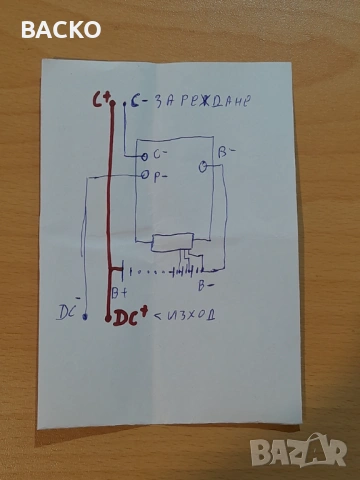 BACKO
C+ C- ЗАРЕЖДАНЕ
C- B-
P-
B+ B-
DC- DC+ < ИЗХОД
BAZAR